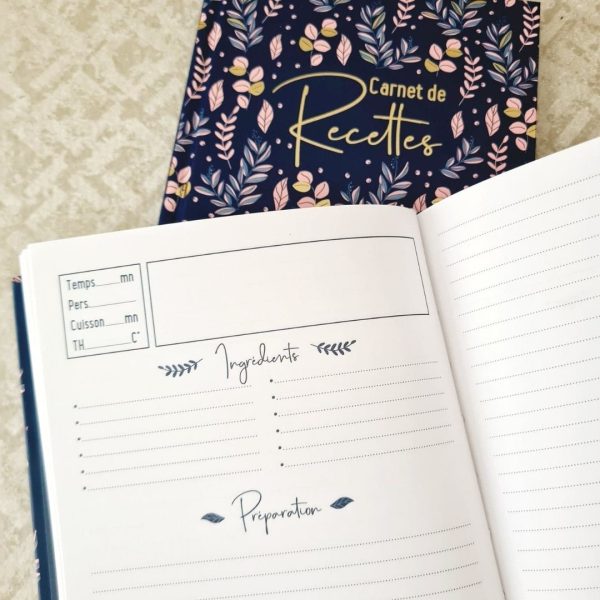 Carnet de
Recettes
Temps......mn
Pers..........
Cuisson.....mn
TH............C°
Ingrédients
Préparation